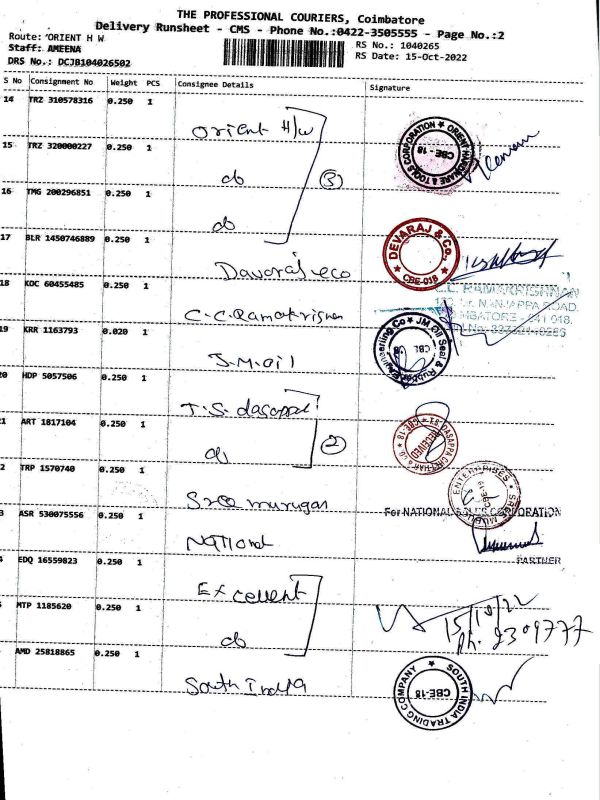 THE PROFESSIONAL COURIERS, Coimbatore
Delivery Runsheet - CMS - Phone No.:0422-3505555 - Page No.:2
Route: ORIENT H W
RS No.: 1040265
Staff: AMEENA
RS Date: 15-Oct-2022
DRS No.: DCJB104026502
S No Consignment No Weight PCS Consignee Details Signature
14 TRZ 310578316 0.250 1 Orient H/w
ORIENT HARDWARE & TOOLS CORPORATION CBE-18
15 TRZ 320000227 0.250 1 do
3
16 TMG 200296851 0.250 1 do
17 BLR 1450746889 0.250 1 Davaraj & co
DEVARAJ & Co., CBE-018
18 KOC 60455485 0.250 1 C.C. Ramakrishnan
C.C. RAMAKRISHNAN
NANJAPPA ROAD,
641 018.
19 KRR 1163793 0.020 1 J.M. oil
JM Oil Seal & Rubber Engineering Co
20 HDP 5057506 0.250 1 T.S. dasappa
1 ART 1817104 0.250 1 do
2
T.S. DASAPPA CBE-18 RECEIVED
2 TRP 1570740 0.250 1 Sree murugan
SREE MURUGAN ENTERPRISES CBE-18
3 ASR 530075556 0.250 1 National
For NATIONAL SALES CORPORATION
PARTNER
4 EDQ 16559823 0.250 1 Excellent
15/10/22
MTP 1185620 0.250 1 do
Ph: 2309777
AMD 25818865 0.250 1 South India
SOUTH INDIA TRADING COMPANY CBE-18